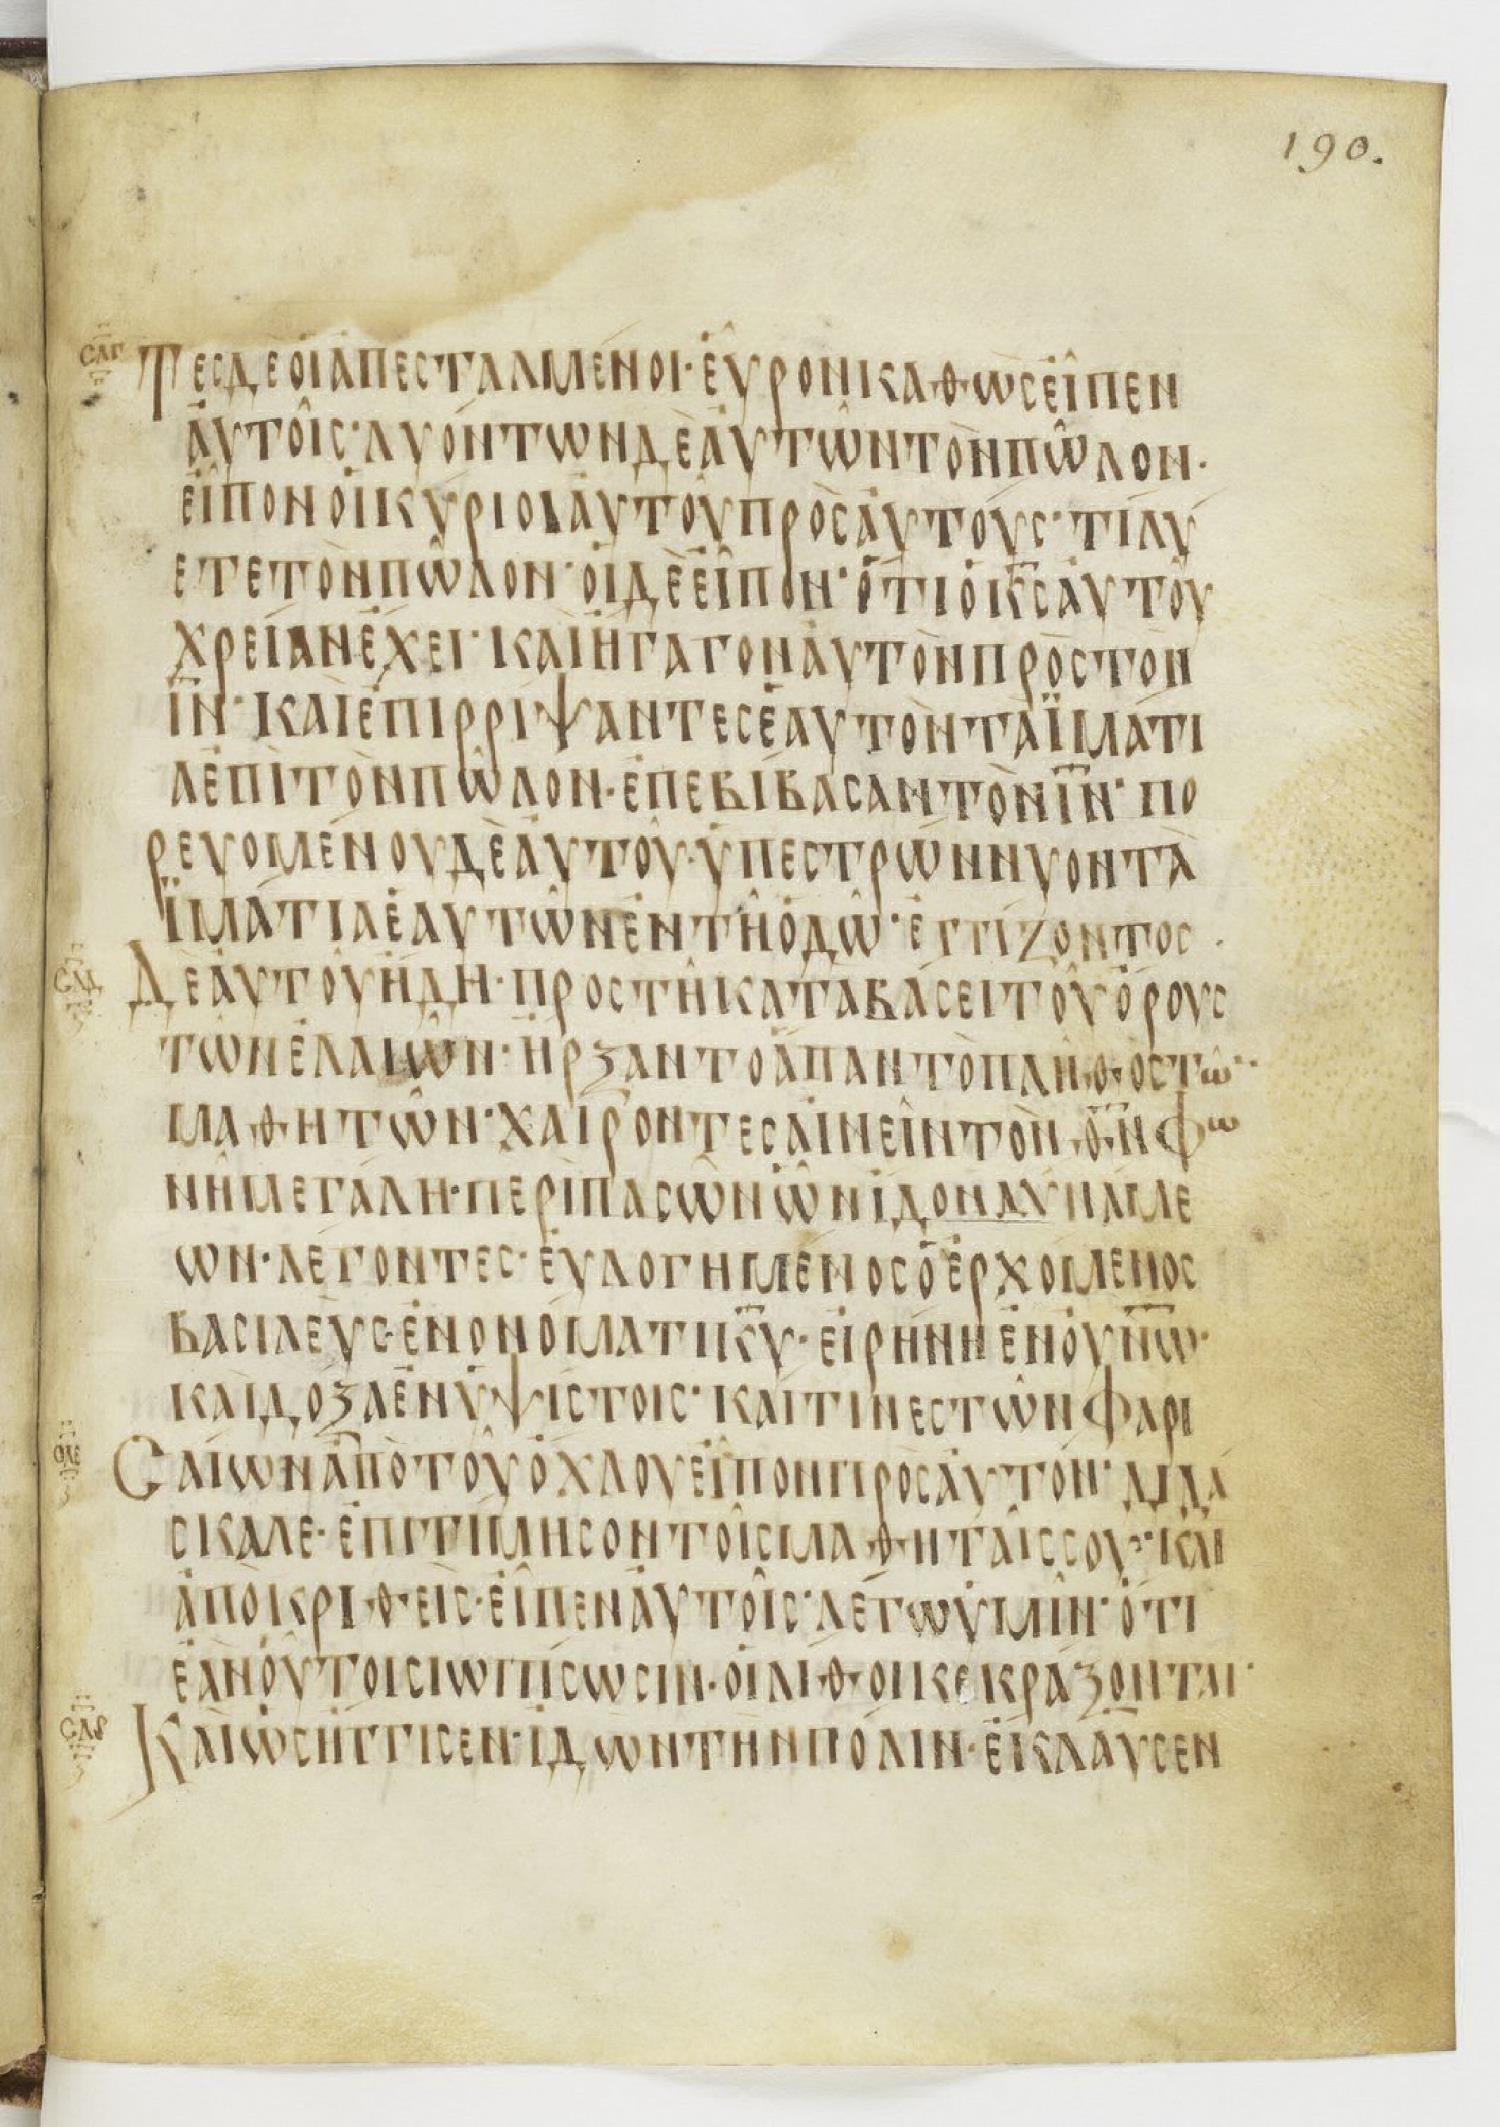 190.
ϹΛΓ ΤΕϹΔΕΟΙΑΠΕϹΤΑΛΜΕΝΟΙ·ΕΥΡΟΝΚΑΘΩϹΕΙΠΕΝ
ΑΥΤΟΙϹ·ΛΥΟΝΤΩΝΔΕΑΥΤΩΝΤΟΝΠΩΛΟΝ·
ΕΙΠΟΝΟΙΚΥΡΙΟΙΑΥΤΟΥΠΡΟϹΑΥΤΟΥϹ·ΤΙΛΥ
ΕΤΕΤΟΝΠΩΛΟΝ·ΟΙΔΕΕΙΠΟΝ·ΟΤΙΟΚ̅Ϲ̅ΑΥΤΟΥ
ΧΡΕΙΑΝΕΧΕΙ·ΚΑΙΗΓΑΓΟΝΑΥΤΟΝΠΡΟϹΤΟΝ
Ι̅Ν̅·ΚΑΙΕΠΙΡΡΙΨΑΝΤΕϹΕΑΥΤΟΝΤΑΪΜΑΤΙ
ΑΕΠΙΤΟΝΠΩΛΟΝ·ΕΠΕΒΙΒΑϹΑΝΤΟΝΙ̅Ν̅·ΠΟ
ΡΕΥΟΜΕΝΟΥΔΕΑΥΤΟΥ·ΥΠΕϹΤΡΩΝΝΥΟΝΤΑ
ΪΜΑΤΙΑΕΑΥΤΩΝΕΝΤΗΟΔΩ·ΕΓΓΙΖΟΝΤΟϹ·
ϹΛΔ ΔΕΑΥΤΟΥΗΔΗ·ΠΡΟϹΤΗΚΑΤΑΒΑϹΕΙΤΟΥΟΡΟΥϹ
ΤΩΝΕΛΑΙΩΝ·ΗΡΞΑΝΤΟΑΠΑΝΤΟΠΛΗΘΟϹΤΩ
ΜΑΘΗΤΩΝ·ΧΑΙΡΟΝΤΕϹΑΙΝΕΙΝΤΟΝΘ̅Ν̅ΦΩ
ΝΗΜΕΓΑΛΗ·ΠΕΡΙΠΑϹΩΝΩΝΙΔΟΝΔΥΝΑΜΕ
ΩΝ·ΛΕΓΟΝΤΕϹ·ΕΥΛΟΓΗΜΕΝΟϹΟΕΡΧΟΜΕΝΟϹ
ΒΑϹΙΛΕΥϹ·ΕΝΟΝΟΜΑΤΙΚ̅Υ̅·ΕΙΡΗΝΗΕΝΟΥΝ̅Ω̅·
ΚΑΙΔΟΞΑΕΝΥΨΙϹΤΟΙϹ·ΚΑΙΤΙΝΕϹΤΩΝΦΑΡΙ
ϹΛΕ ϹΑΙΩΝΑΠΟΤΟΥΟΧΛΟΥΕΙΠΟΝΠΡΟϹΑΥΤΟΝ·ΔΙΔΑ
ϹΚΑΛΕ·ΕΠΙΤΙΜΗϹΟΝΤΟΙϹΜΑΘΗΤΑΙϹϹΟΥ·ΚΑΙ
ΑΠΟΚΡΙΘΕΙϹ·ΕΙΠΕΝΑΥΤΟΙϹ·ΛΕΓΩΥΜΙΝ·ΟΤΙ
ΕΑΝΟΥΤΟΙϹΙΩΠΙϹΩϹΙΝ·ΟΙΛΙΘΟΙΚΕΚΡΑΞΟΝΤΑΙ·
ϹΛϚ ΚΑΙΩϹΗΓΓΙϹΕΝ·ΙΔΩΝΤΗΝΠΟΛΙΝ·ΕΚΛΑΥϹΕΝ